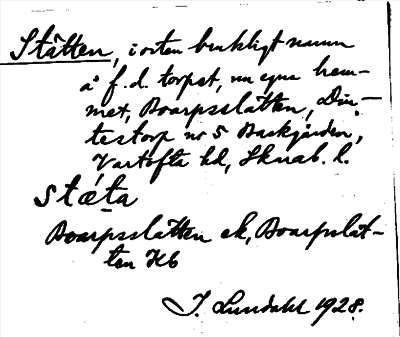 Slätten, i orten brukligt namn
å f.d. torpet, nu egna hem-
met, Boarpsslätten, Dim-
testorp nr 5 Backgården,
Vartofta hd, Skarab. l.
slæ̀ta
Boarpsslätten ek, Boarpslät-
ten Hb
J. Lundahl 1928.